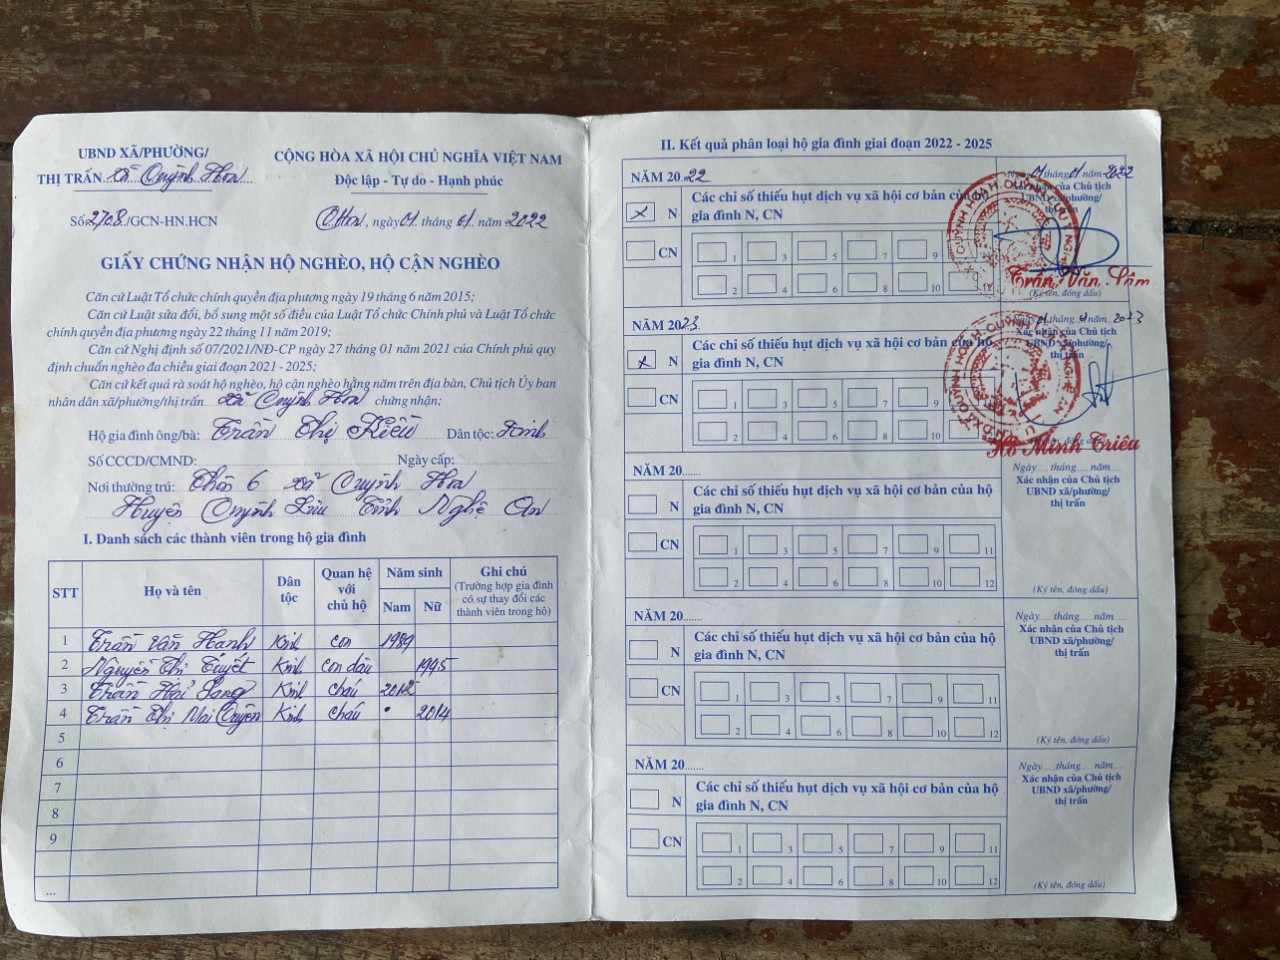 UBND XÃ/PHƯỜNG/
THỊ TRẤN xã Quỳnh Hoa
CỘNG HÒA XÃ HỘI CHỦ NGHĨA VIỆT NAM
Độc lập - Tự do - Hạnh phúc
Số 2708/GCN-HN.HCN
Q.Hoa, ngày 01 tháng 01 năm 2022
GIẤY CHỨNG NHẬN HỘ NGHÈO, HỘ CẬN NGHÈO
Căn cứ Luật Tổ chức chính quyền địa phương ngày 19 tháng 6 năm 2015;
Căn cứ Luật sửa đổi, bổ sung một số điều của Luật Tổ chức Chính phủ và Luật Tổ chức
chính quyền địa phương ngày 22 tháng 11 năm 2019;
Căn cứ Nghị định số 07/2021/NĐ-CP ngày 27 tháng 01 năm 2021 của Chính phủ quy
định chuẩn nghèo đa chiều giai đoạn 2021 - 2025;
Căn cứ kết quả rà soát hộ nghèo, hộ cận nghèo hằng năm trên địa bàn, Chủ tịch Ủy ban
nhân dân xã/phường/thị trấn xã Quỳnh Hoa chứng nhận;
Hộ gia đình ông/bà: Trần Thị Kiều Dân tộc: Kinh
Số CCCD/CMND: Ngày cấp:
Nơi thường trú: Thôn 6 xã Quỳnh Hoa
Huyện Quỳnh Lưu Tỉnh Nghệ An
I. Danh sách các thành viên trong hộ gia đình
STT Họ và tên Dân tộc Quan hệ với chủ hộ Năm sinh Nam Nữ Ghi chú
(Trường hợp gia đình có sự thay đổi các thành viên trong hộ)
1 Trần Văn Hanh Kinh con 1989
2 Nguyễn Thị Tuyết Kinh con dâu 1995
3 Trần Hải Kinh cháu 2012
4 Trần Thị Mai Quyên Kinh cháu 2014
5
6
7
8
9
...
II. Kết quả phân loại hộ gia đình giai đoạn 2022 - 2025
NĂM 2022
x N Các chỉ số thiếu hụt dịch vụ xã hội cơ bản của hộ
gia đình N, CN
CN
1 3 5 7 9
2 4 6 8 10 12
Ngày 01 tháng 01 năm 2022
Xác nhận của Chủ tịch
UBND xã/phường/
Trần Văn Lâm
(Ký tên, đóng dấu)
NĂM 2023
x N Các chỉ số thiếu hụt dịch vụ xã hội cơ bản của hộ
gia đình N, CN
CN
1 3 5 7 9
2 4 6 8 10
Xác nhận của Chủ tịch
UBND xã/phường/
thị trấn
Hồ Minh Triều
NĂM 20
N Các chỉ số thiếu hụt dịch vụ xã hội cơ bản của hộ
gia đình N, CN
CN
1 3 5 7 9 11
2 4 6 8 10 12
Ngày tháng năm
Xác nhận của Chủ tịch
UBND xã/phường/
thị trấn
(Ký tên, đóng dấu)
NĂM 20
N Các chỉ số thiếu hụt dịch vụ xã hội cơ bản của hộ
gia đình N, CN
CN
1 3 5 7 9 11
2 4 6 8 10 12
Ngày tháng năm
Xác nhận của Chủ tịch
UBND xã/phường/
thị trấn
(Ký tên, đóng dấu)
NĂM 20
N Các chỉ số thiếu hụt dịch vụ xã hội cơ bản của hộ
gia đình N, CN
CN
1 3 5 7 9 11
2 4 6 8 10 12
Ngày tháng năm
Xác nhận của Chủ tịch
UBND xã/phường/
thị trấn
(Ký tên, đóng dấu)